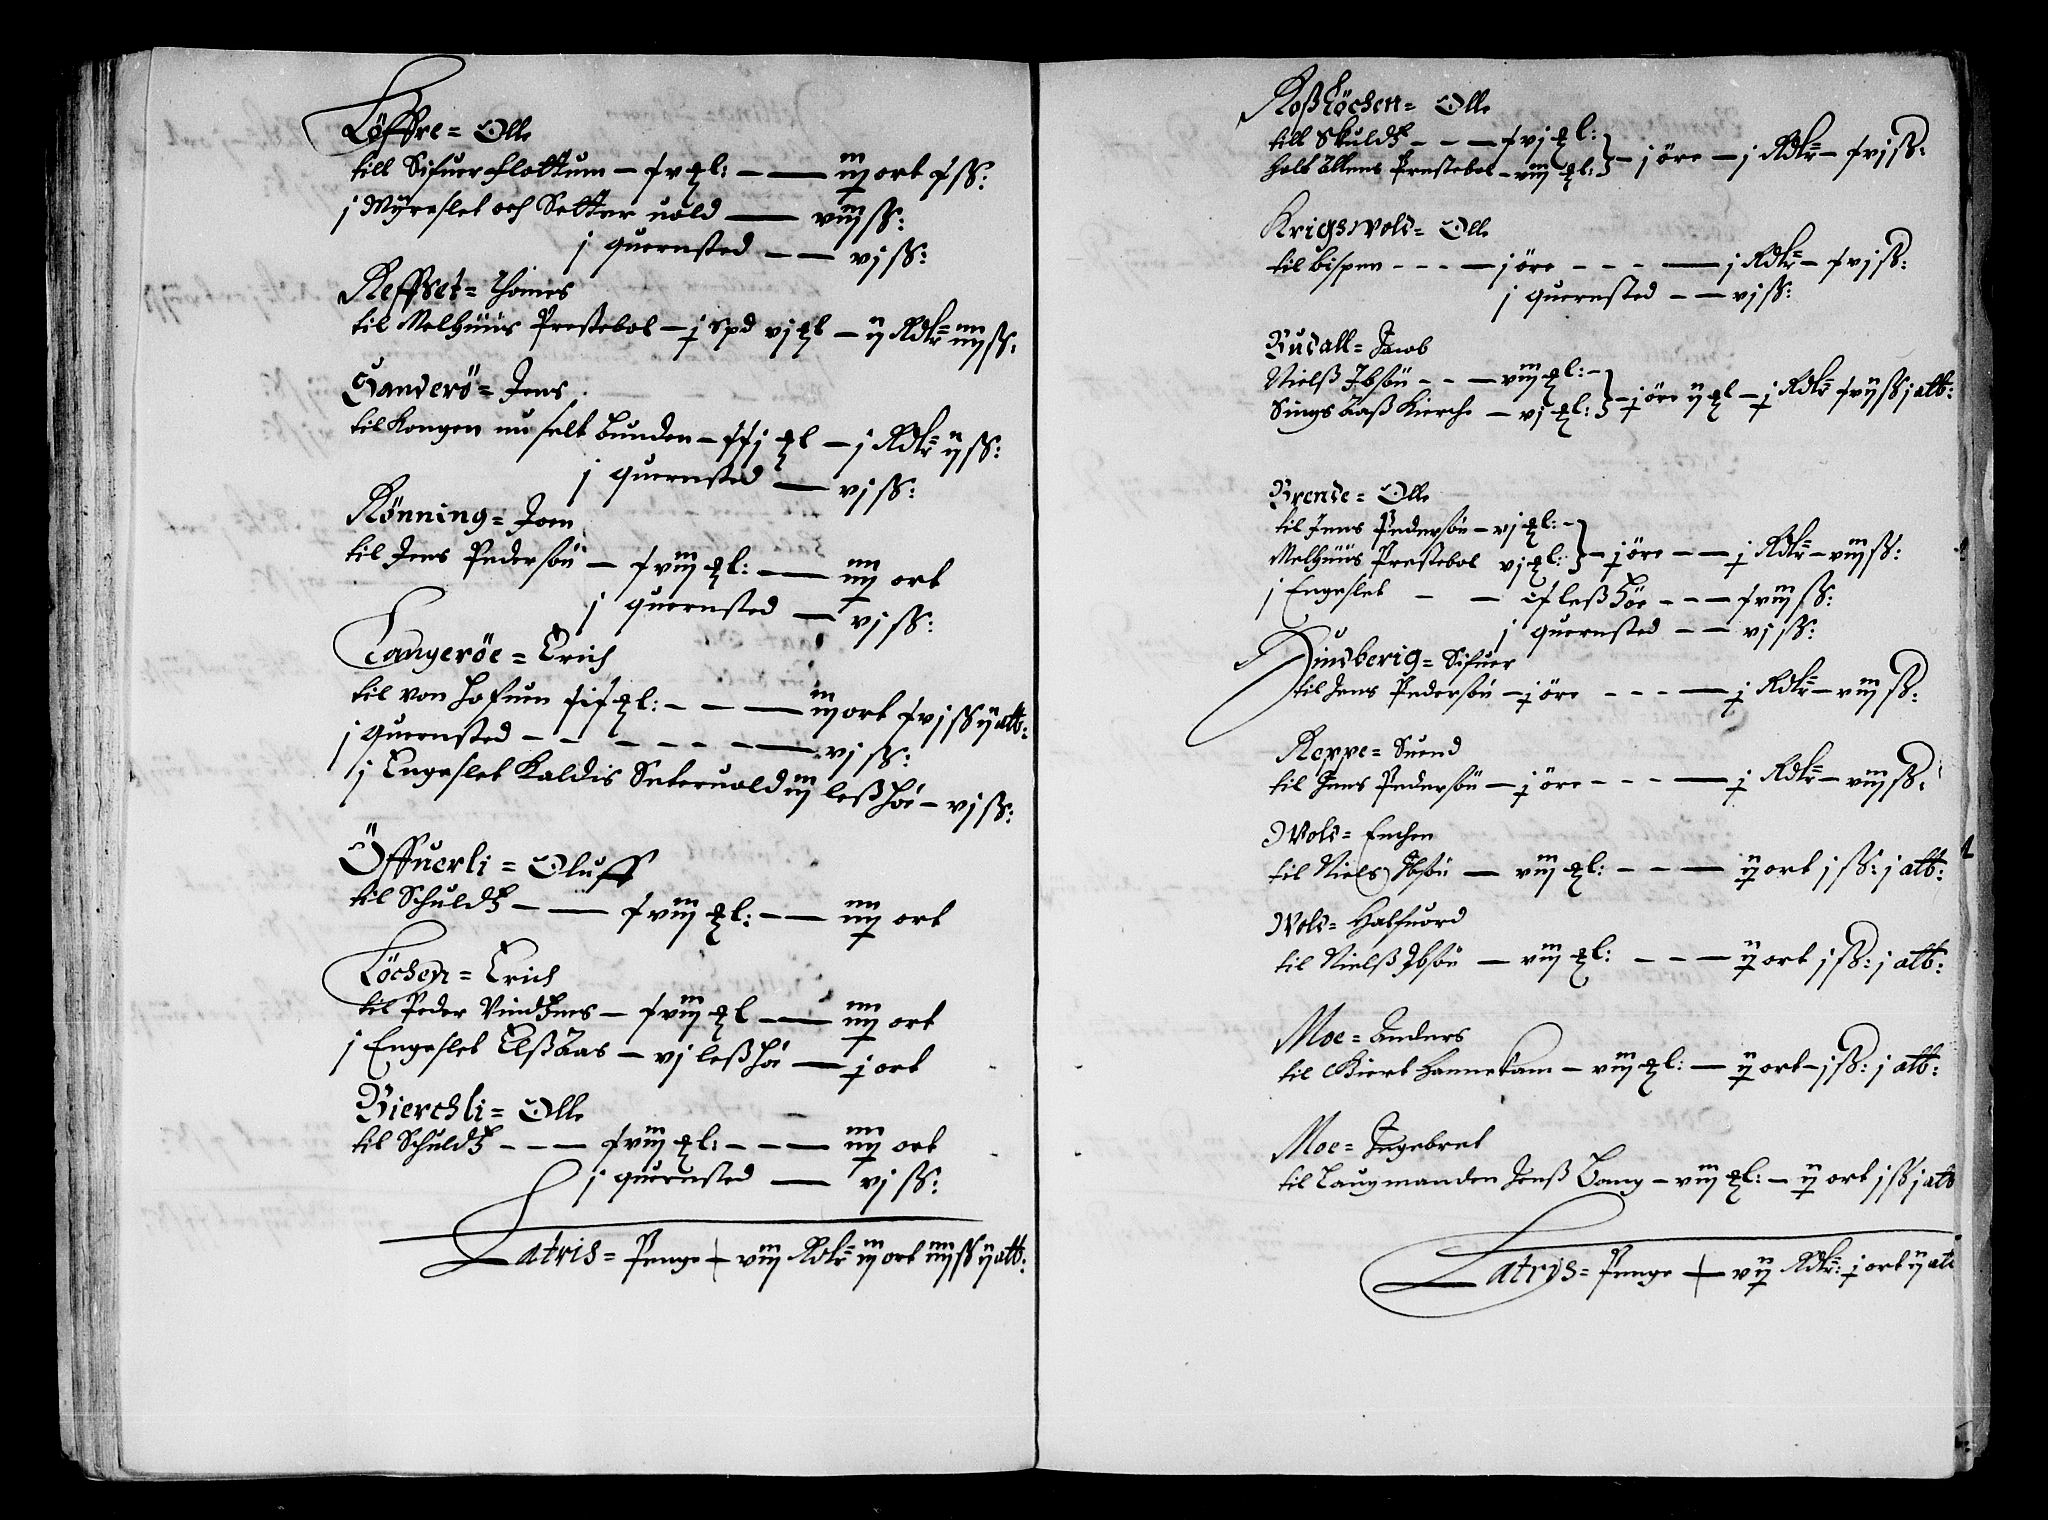 Løffre = Olle
till Sifuer flottum — xv ℔l: — iij ort x ß:
j Myreslet och Setter uold — viij ß:
j quernsted — vj ß:
Reffset = Thomes
til Melhuus Prestebol — j spd vj ℔l — ij Rdlr iiij ß:
Handerö = Jens
til Kongen nu selt bunden — xxj ℔l — j Rdlr ij ß:
j quernsted — vj ß:
Rönning = Joen
til Jens Pedersön — xviij ℔l: — iiij ort
j quernsted — vj ß:
Langeröe = Erich
til von Hofuen ℔l: — iij ort xvj ß ij alb:
j quernsted — vj ß:
j Engeslet Kaldis Seteruold iij leß höe — vj ß:
Öffuerli = Oluff
til Schuldtz — xviij ℔l: — iiij ort
Löchen = Erich
til Peder — xviij ℔l — iiij ort
j Engeslet Elßaas — vj leß hö — j ort
Bierchli = Olle
til Schuldtz — xviij ℔l: — iiij ort
j quernsted — vj ß:
Latris = Penge — viij Rdlr iij ort iiij ß ij alb:
Roßlöchen = Olle
till Skuldtz — xvj ℔l:
Holtaalens Prestebol — viij ℔l: } — j öre — j Rdlr — xvj ß:
Krigswold = Olle
til bispen — j öre — j Rdlr — xvj ß:
j quernsted — vj ß:
Budall = Jacob
Nielß Ibsön — viij ℔l:
Singsaaß Kierche — vj ℔l: } — j öre ij ℔l — j Rdlr xvij ß j alb:
Brende = Olle
til Jens Pedersön — vj ℔l:
Melhuus Prestebol vj ℔l: } — j öre — j Rdlr — viij ß:
j Engeslet — leß höe — xviij ß:
j quernsted — vj ß:
Hindberig = Sifuer
til Jens Pedersön — j öre — j Rdlr — viij ß:
Reppe = Suend
til Jens Pedersön — j öre — j Rdlr — viij ß:
Wold = Enchen
til Niels Ibsön — viij ℔l: — ij ort j ß: j alb:
Wold = Halfuord
til Nielß Ibsön — viij ℔l: — ij ort j ß: j alb:
Moe = Anders
til Giert — viij ℔l: — ij ort — j ß: j alb:
Moe = Ingebret
til Laugmanden Jenß Bang — viij ℔l: — ij ort j ß j alb
Latris = Penge — vij Rdlr: j ort ij alb